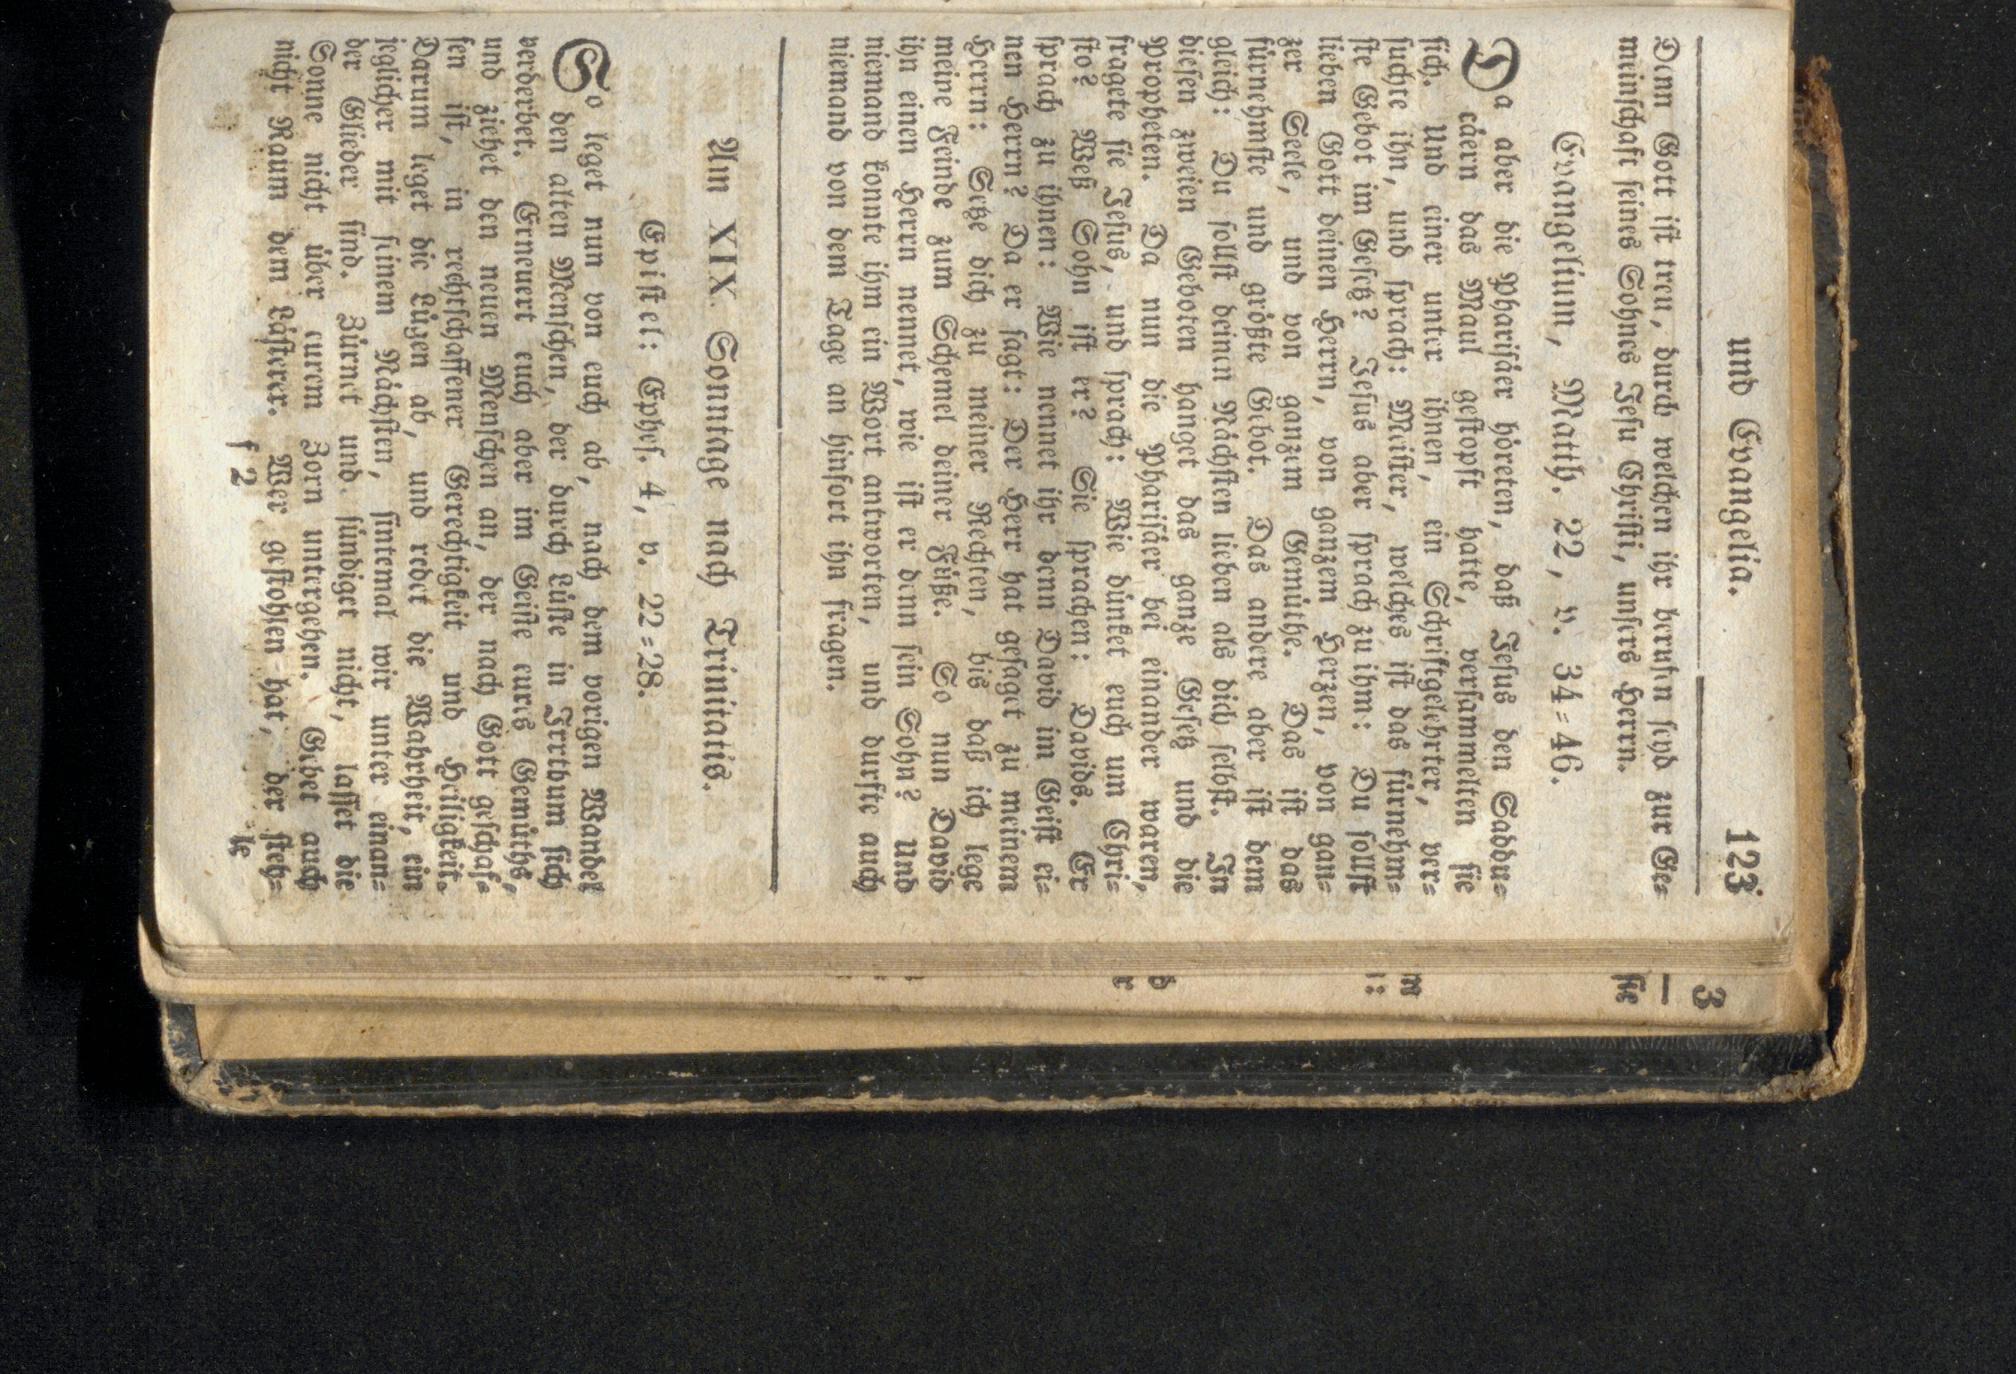 und Evangelia. 123
Denn Gott ist treu, durch welchen ihr berufen seyd zur Ge-
meinschaft seines Sohnes Jesu Christi, unsers Herrn.
Evangelium, Matth. 22, v. 34-46.
Da aber die Pharisäer höreten, daß Jesus den Saddu-
cäern das Maul gestopft hatte, versammelten sie
sich. Und einer unter ihnen, ein Schriftgelehrter, ver-
suchte ihn, und sprach: Meister, welches ist das fürnehm-
ste Gebot im Gesetz? Jesus aber sprach zu ihm: Du sollst
lieben Gott deinen Herrn, von ganzem Herzen, von gan-
zer Seele, und von ganzem Gemüthe. Das ist das
fürnehmste und größte Gebot. Das andere aber ist dem
gleich: Du sollst deinen Nächsten lieben als dich selbst. In
diesen zweien Geboten hanget das ganze Gesetz und die
Propheten. Da nun die Pharisäer bei einander waren,
fragete sie Jesus, und sprach: Wie dünket euch um Chri-
sto? Weß Sohn ist er? Sie sprachen: Davids. Er
sprach zu ihnen: Wie nennet ihr denn David im Geist ei-
nen Herrn? Da er sagt: Der Herr hat gesagt zu meinem
Herrn: Setze dich zu meiner Rechten, bis daß ich lege
meine Feinde zum Schemel deiner Füße. So nun David
ihn einen Herrn nennet, wie ist er denn sein Sohn? Und
niemand konnte ihm ein Wort antworten, und durfte auch
niemand von dem Tage an hinfort ihn fragen.
Am XIX. Sonntage nach Trinitatis.
Epistel: Ephes. 4, v. 22-28.
So leget nun von euch ab, nach dem vorigen Wandel
den alten Menschen, der durch Lüste in Irrthum sich
verderbet. Erneuert euch aber im Geiste eures Gemüths,
und ziehet den neuen Menschen an, der nach Gott geschaf-
fen ist, in rechtschaffener Gerechtigkeit und Heiligkeit.
Darum leget die Lügen ab, und redet die Wahrheit, ein
jeglicher mit seinem Nächsten, sintemal wir unter einan-
der Glieder sind. Zürnet und sündiget nicht, lasset die
Sonne nicht über eurem Zorn untergehen. Gebet auch
nicht Raum dem Lästerer. Wer gestohlen hat, der steh-
f 2 le
3
sie